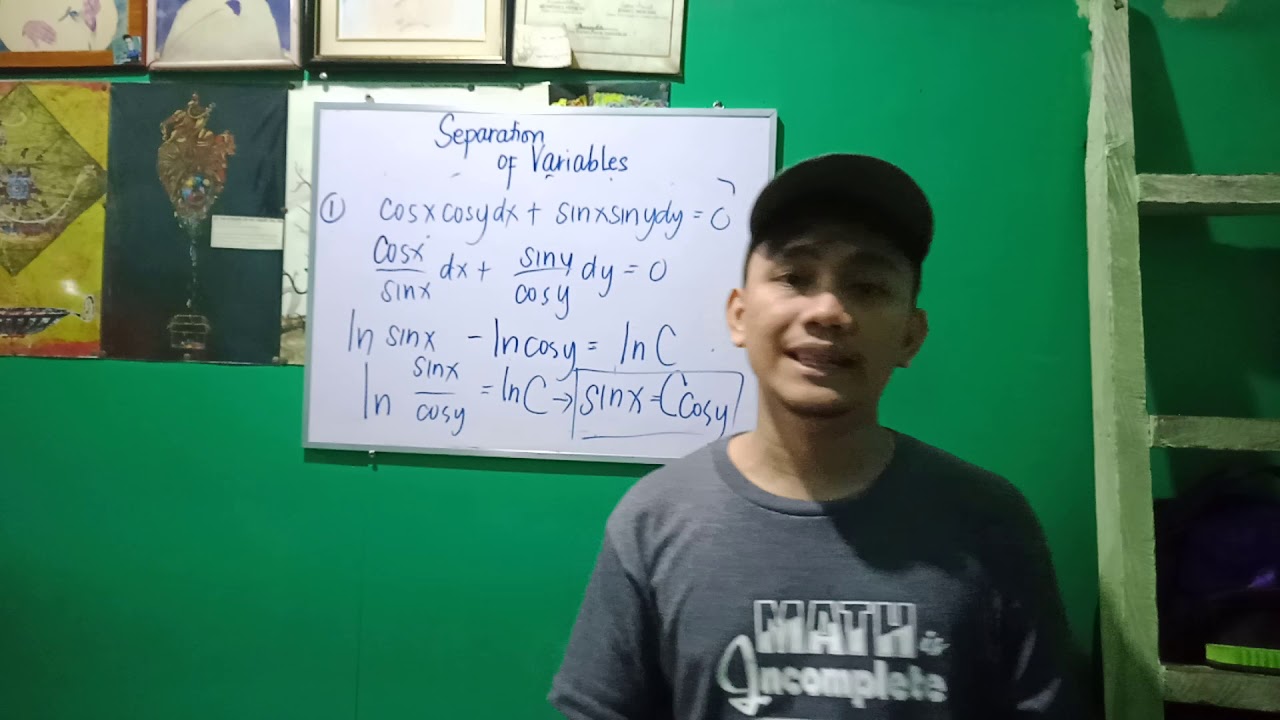 Separation
of Variables
① cosxcosydx + sinxsinydy = 0
cosx/sinx dx + siny/cosy dy = 0
ln sinx - lncosy = lnC
ln sinx/cosy = lnC → sinx = Ccosy
MATH is
Incomplete